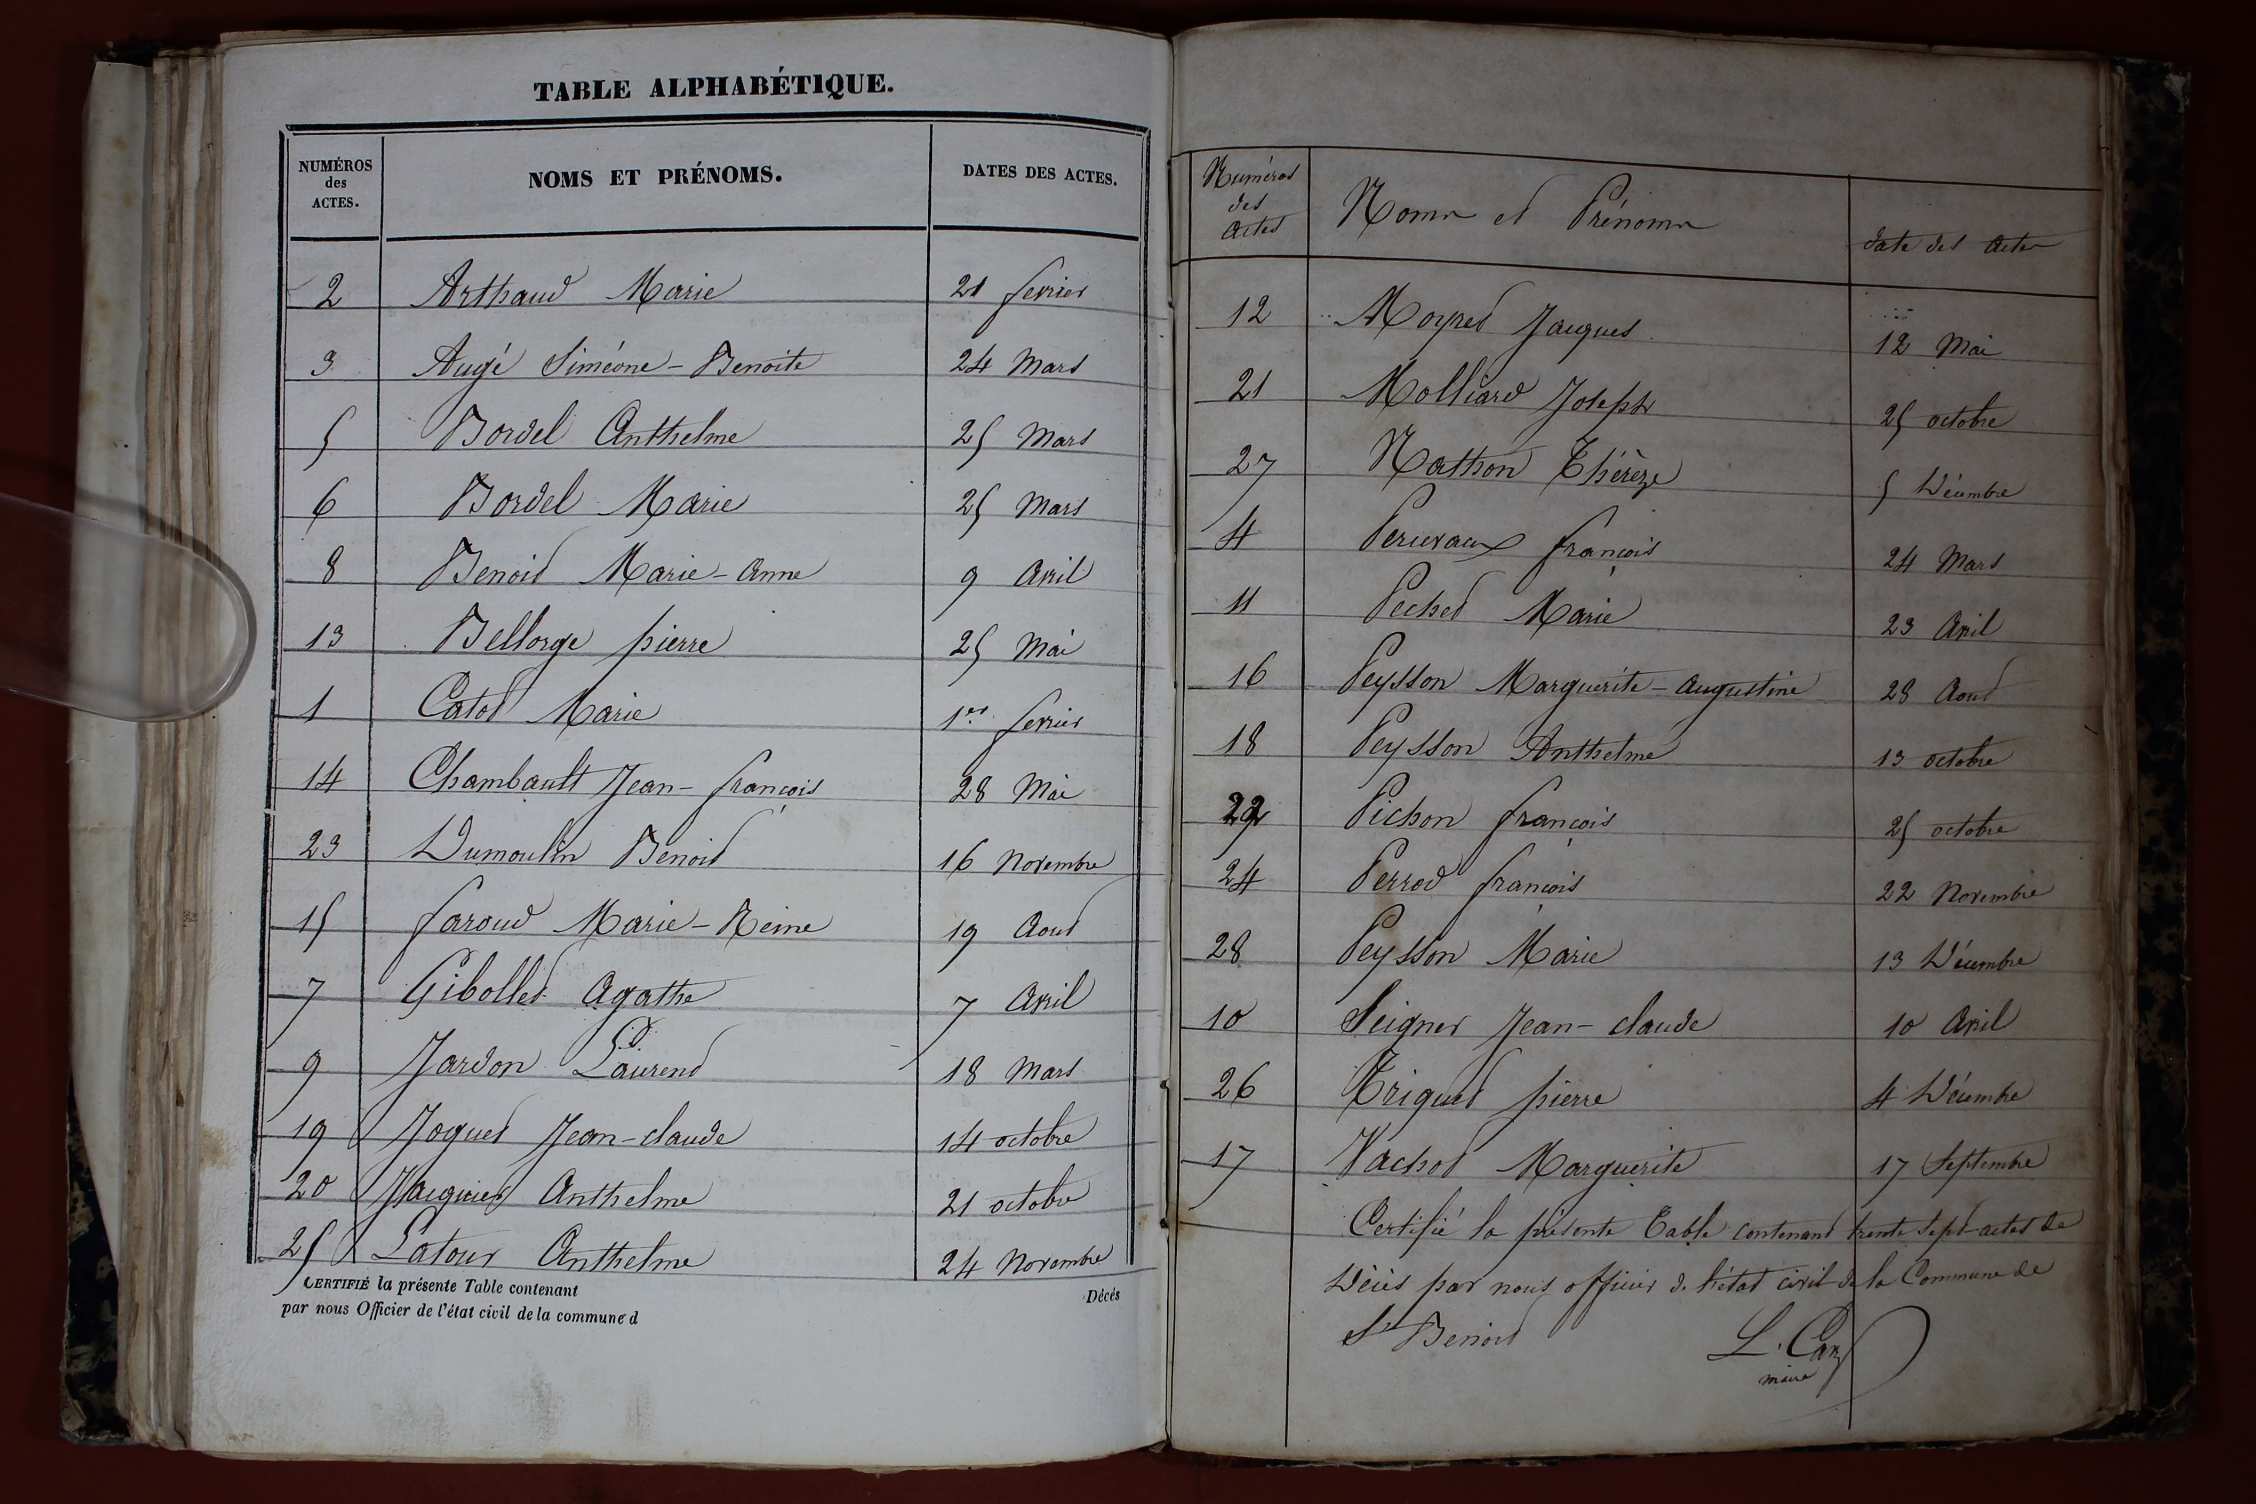 TABLE ALPHABÉTIQUE.
NUMÉROS des ACTES. NOMS ET PRÉNOMS. DATES DES ACTES.
2 Arthaud Marie 21 fevrier
3 Augé Siméone-Benoite 24 Mars
5 Bordel Anthelme 25 Mars
6 Bordel Marie 25 Mars
8 Benoit Marie-Anne 9 Avril
13 Bellorge pierre 25 Mai
1 Catot Marie 1er fevrier
14 Chambault Jean-françois 28 Mai
23 Dumoulin Benoit 16 Novembre
15 faroud Marie-Reine 19 Aout
7 Gibollet Agathe 7 Avril
9 Jardon Laurent 18 Mars
19 Joguet Jean-claude 14 octobre
20 Jacquier Anthelme 21 octobre
25 Latour Anthelme 24 Novembre
CERTIFIÉ la présente Table contenant Décés
par nous Officier de l'état civil de la commune d
Numéros des Actes Noms et Prénoms date des Actes
12 Moyret Jacques 12 Mai
21 Molliard Joseph 25 octobre
27 Nathon Thérèze 5 Décembre
4 Perrevaux françois 24 Mars
11 Pechet Marie 23 Avril
16 Peysson Marguerite-Augustine 28 Aout
18 Peysson Anthelme 13 octobre
22 Pichon françois 25 octobre
24 Perrod françois 22 Novembre
28 Peysson Marie 13 Décembre
10 Seigner Jean-claude 10 Avril
26 Triquet pierre 4 Décembre
17 Vachot Marguerite 17 Septembre
Certifié la présente Table contenant trente sept actes de
Décès par nous officier de l'état civil de la Commune de
St Benoit
maire